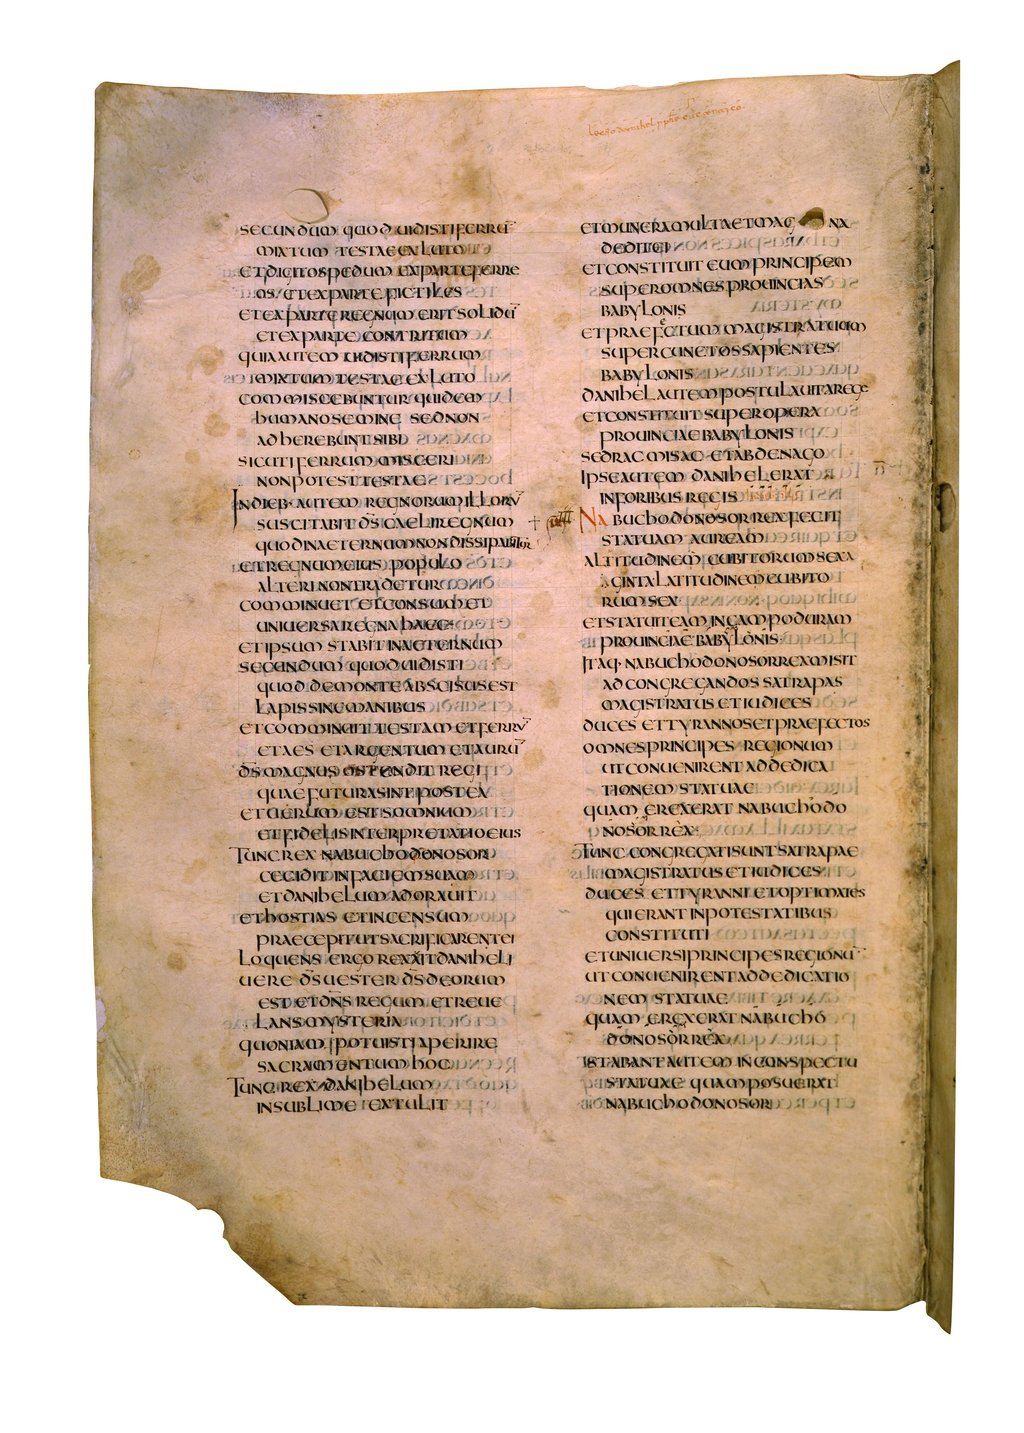 SECUNDUM QUOD UIDISTI FERRU̅
MIXTUM TESTAE EX LUTO
ET DIGITOS PEDUM EX PARTE FERRE
OS ET EX PARTE FICTILES
ET EX PARTE REGNUM ERIT SOLIDU̅
ET EX PARTE CONTRITUM
QUIA AUTEM UIDISTI FERRUM
MIXTUM TESTAE EX LUTO
COMMISCEBUNTUR QUIDEM
HUMANO SEMINE SED NON
ADHEREBUNT SIBI
SICUTI FERRUM MISCERI
NON POTEST TESTAE
IN DIEB· AUTEM REGNORUM ILLORU̅
SUSCITABIT D̅S CAELI REGNUM
QUOD IN AETERNUM NON DISSIPABITUR
ET REGNUM EIUS POPULO
ALTERI NON TRADETUR
COMMINUET ET CONSUMET
UNIUERSA REGNA HAEC
ET IPSUM STABIT IN AETERNUM
SECUNDUM QUOD UIDISTI
QUOD DE MONTE ABSCISUS EST
LAPIS SINE MANIBUS
ET COMMINUIT TESTAM ET FERRU̅
ET AES ET ARGENTUM ET AURU̅
D̅S MAGNUS OSTENDIT REGI
QUAE FUTURA SINT POSTEA
ET UERUM EST SOMNIUM
ET FIDELIS INTERPRETATIO EIUS
TUNC REX NABUCHODONOSOR
CECIDIT IN FACIEM SUAM
ET DANIHELUM ADORAUIT
ET HOSTIAS ET INCENSUM
PRAECEPIT UT SACRIFICARENT EI
LOQUENS ERGO REX AIT DANIHELI
UERE D̅S UESTER D̅S DEORUM
EST ET D̅N̅S REGUM ET REUE
LANS MYSTERIA
QUONIAM POTUISTI APERIRE
SACRAMENTUM HOC
TUNC REX DANIHELUM
IN SUBLIME EXTULIT
ET MUNERA MULTA ET MAG NA
DEDIT EI
ET CONSTITUIT EUM PRINCIPEM
SUPER OMNES PROUINCIAS
BABYLONIS
ET PRAEFECTUM MAGISTRATUUM
SUPER CUNCTOS SAPIENTES
BABYLONIS
DANIHEL AUTEM POSTULAUIT A REGE
ET CONSTITUIT SUPER OPERA
PROUINCIAE BABYLONIS
SEDRAC MISAC ET ABDENAGO
IPSE AUTEM DANIHEL ERAT
IN FORIBUS REGIS
NABUCHODONOSOR REX FECIT
STATUAM AUREAM
ALTITUDINEM CUBITORUM SEXA
GINTA LATITUDINEM CUBITO
RUM SEX
ET STATUIT EAM IN CAMPO DURAM
PROUINCIAE BABYLONIS
ITAQ· NABUCHODONOSOR REX MISIT
AD CONGREGANDOS SATRAPAS
MAGISTRATUS ET IUDICES
DUCES ET TYRANNOS ET PRAEFECTOS
OMNES PRINCIPES REGIONUM
UT CONUENIRENT AD DEDICA
TIONEM STATUAE
QUAM EREXERAT NABUCHODO
NOSOR REX
TUNC CONGREGATI SUNT SATRAPAE
MAGISTRATUS ET IUDICES
DUCES ET TYRANNI ET OPTIMATES
QUI ERANT IN POTESTATIBUS
CONSTITUTI
ET UNIUERSI PRINCIPES REGIONU̅
UT CONUENIRENT AD DEDICATIO
NEM STATUAE
QUAM EREXERAT NABUCHO
DONOSOR REX
STABANT AUTEM IN CONSPECTU
STATUAE QUAM POSUERAT
NABUCHODONOSOR